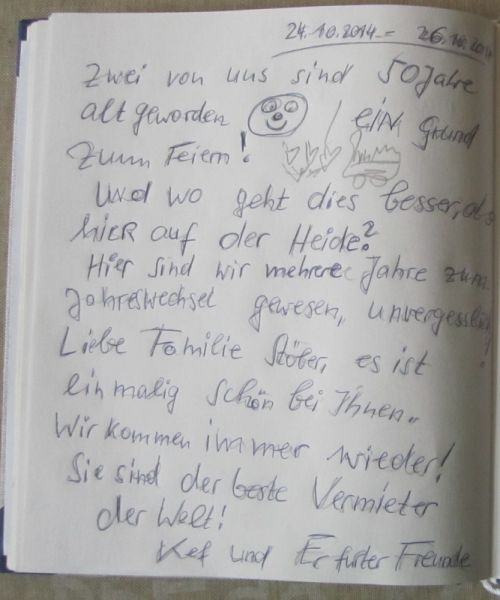 24.10.2014 - 26.10.2014
Zwei von uns sind 50 Jahre
alt geworden, ein Grund
zum Feiern!
Und wo geht dies besser, als
hier auf der Heide?
Hier sind wir mehrere Jahre zum
Jahreswechsel gewesen, unvergesslich!
Liebe Familie Stöber, es ist
einmalig schön bei Ihnen.
Wir kommen immer wieder!
Sie sind der beste Vermieter
der Welt!
und Erfurter Freunde